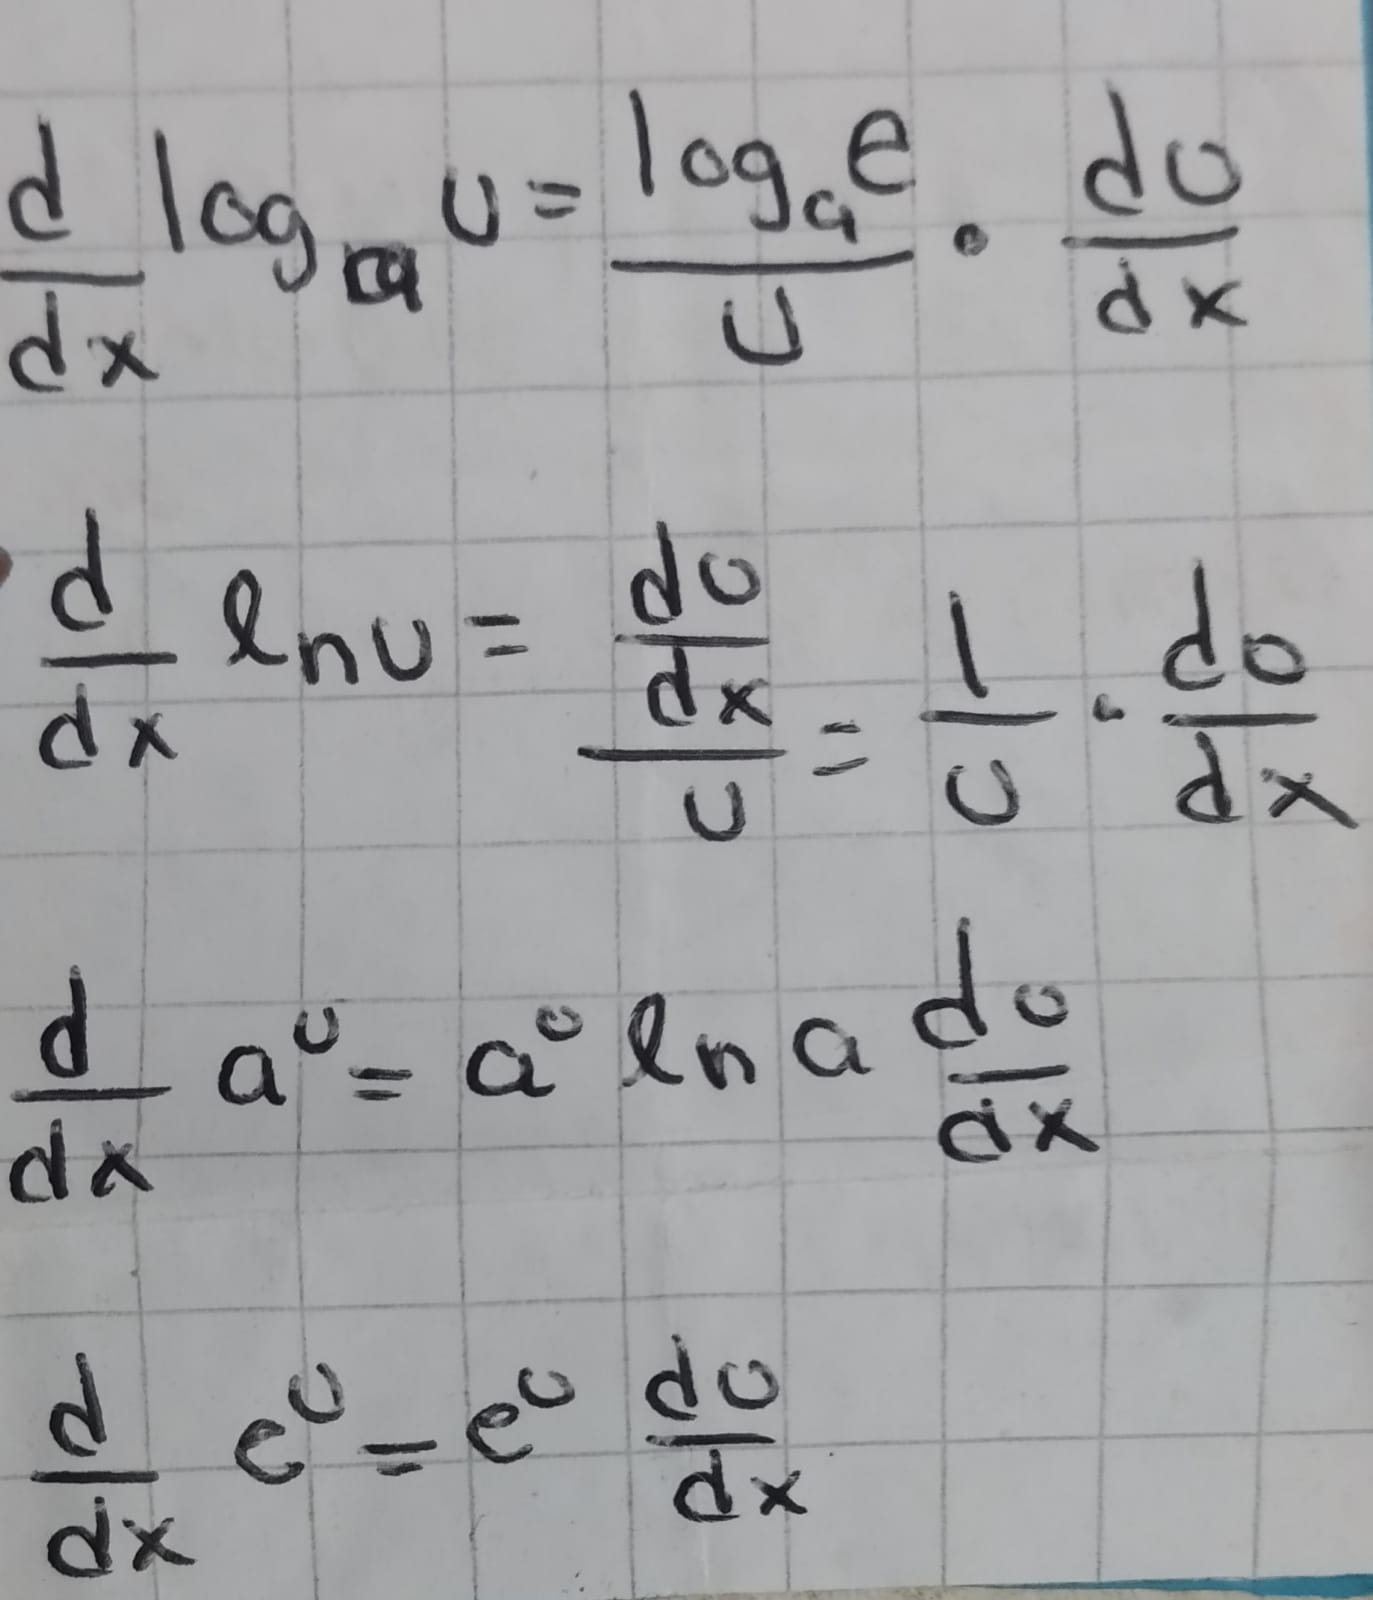 d/dx log_a u = log_a e / u · du/dx
d/dx ln u = du/dx / u = 1/u · du/dx
d/dx a^u = a^u ln a du/dx
d/dx e^u = e^u du/dx